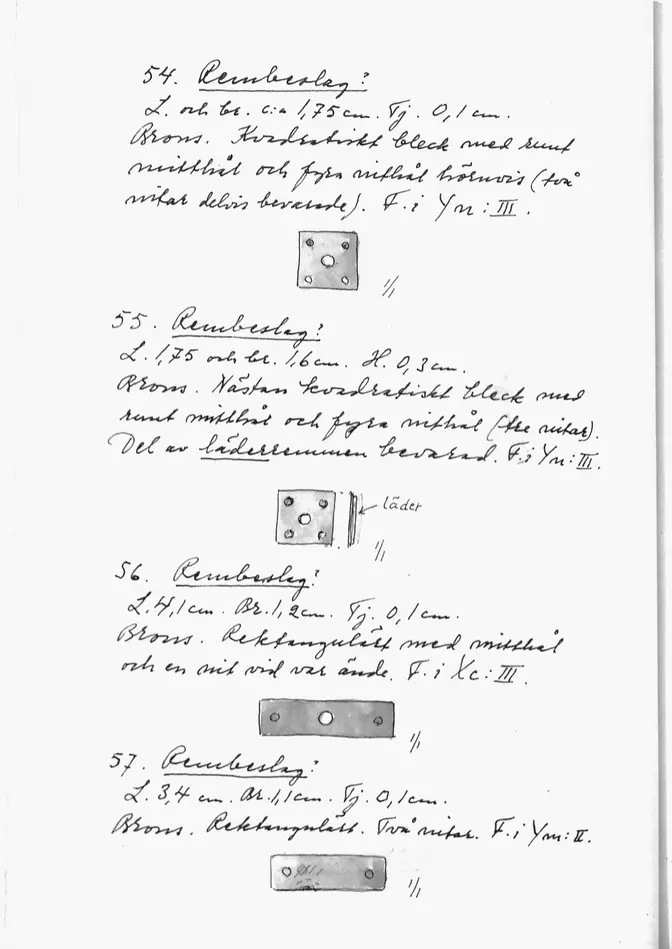 54. Rembeslag?
L. och br. c:a 1,75 cm. Tj. 0,1 cm.
Brons. Kvadratiskt bleck med runt
mitthål och fyra nithål hörnvis (två
nitar delvis bevarade). F. i Yn:III.
1/1
55. Rembeslag?
L. 1,75 och br. 1,6 cm. H. 0,3 cm.
Brons. Nästan kvadratiskt bleck med
runt mitthål och fyra nithål (tre nitar).
Del av läderremmen bevarad. F. i Yn:III.
läder
1/1
56. Rembeslag?
L. 4,1 cm. Br. 1,2 cm. Tj. 0,1 cm.
Brons. Rektangulärt med mitthål
och en nit vid var ände. F. i Xc:III.
1/1
57. Rembeslag?
L. 3,4 cm. Br. 1,1 cm. Tj. 0,1 cm.
Brons. Rektangulärt. Två nitar. F. i Ym:II.
1/1